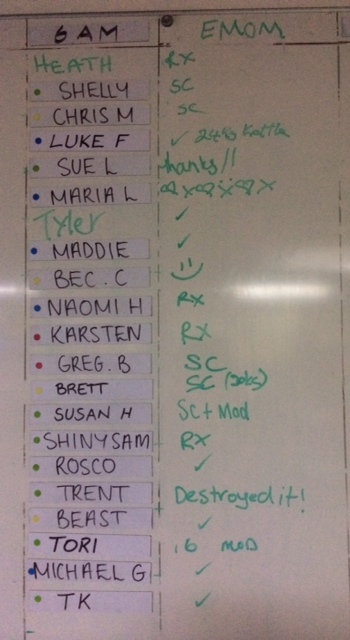 6 AM EMOM
HEATH RX
SHELLY SC
CHRIS M SC
LUKE F ✓ 24kg Kettle
SUE L thanks!!
MARIA L
Tyler ✓
MADDIE ✓
BEC. C
NAOMI H RX
KARSTEN RX
GREG. B SC
BRETT SC (20lbs)
SUSAN H SC + Mod
SHINY SAM RX
ROSCO ✓
TRENT Destroyed it!
BEAST ✓
TORI .6 MOD
MICHAEL G ✓
TK ✓